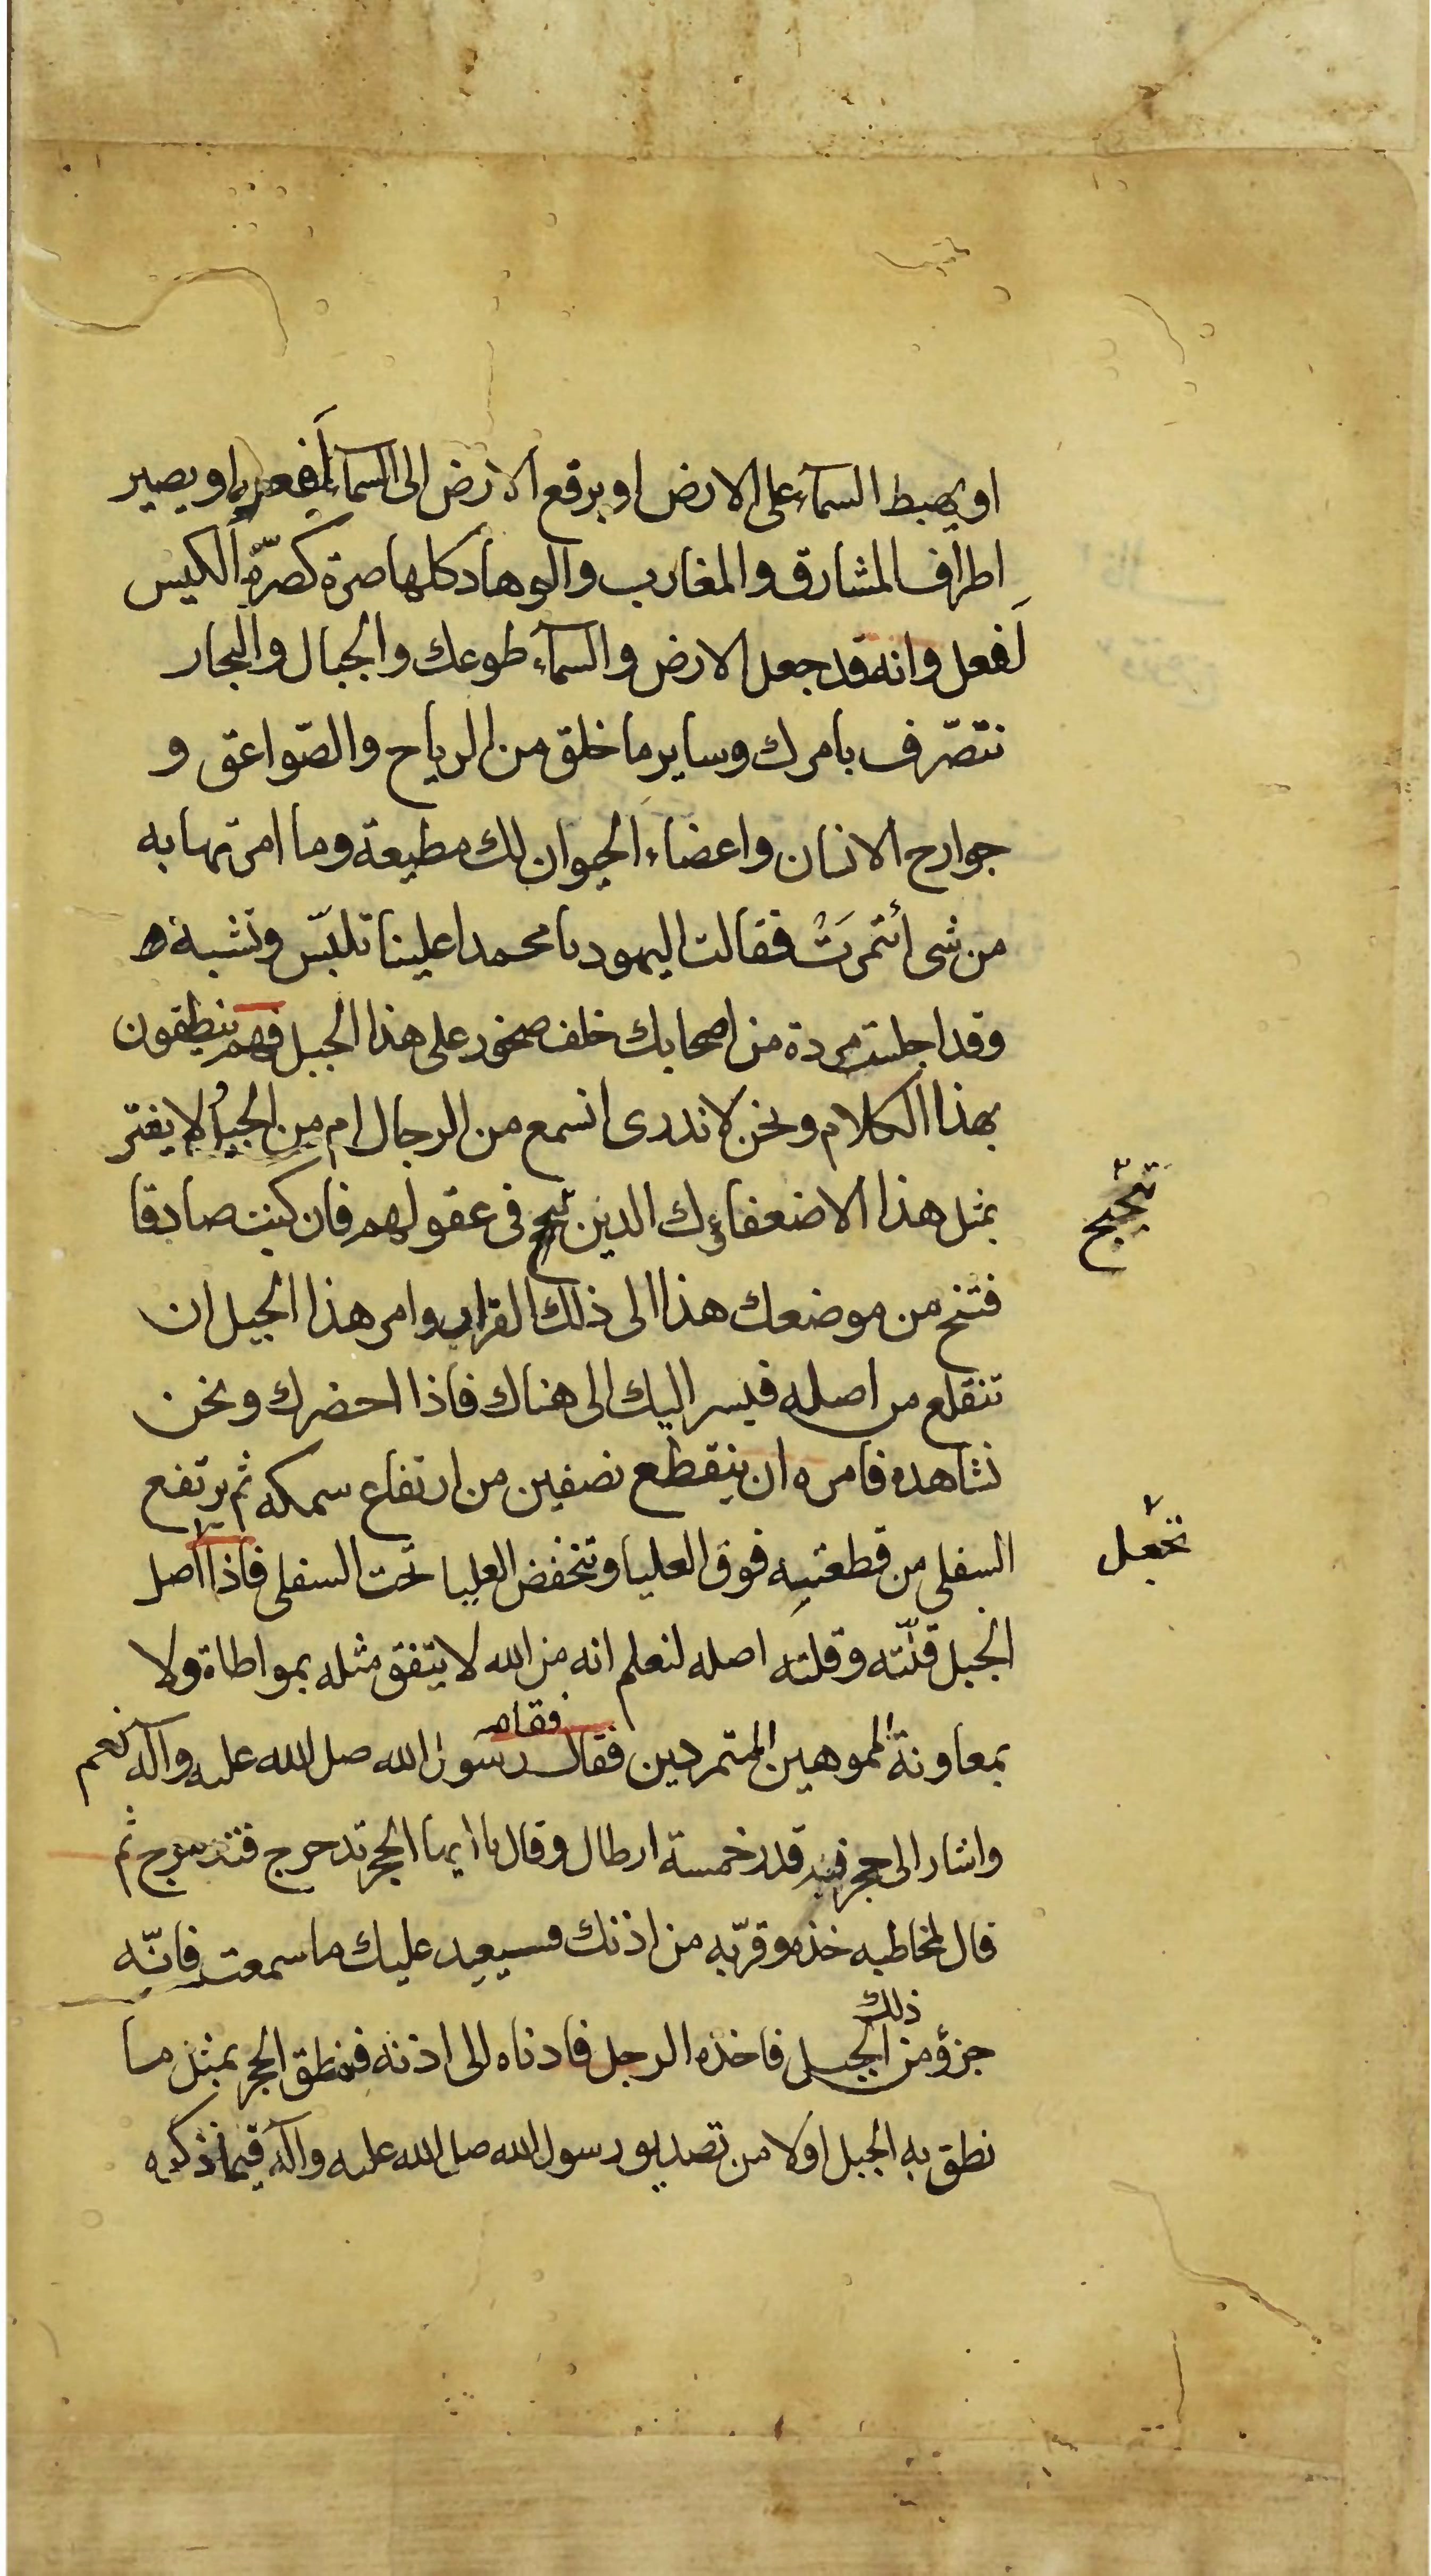 او يهبط السمآء على الارض او يرفع الارض الى السمآء لفعل او يصير
اطراف المشارق والمغارب والوهاد كلها صرة كصرّة الكيس
لَفعل وانه قد جعل الارض والسمآء طوعك والجبال والبحار
تتصّرف بامرك وساير ما خلق من الرياح والصّواعق و
جوارح الانسان واعضاء الحيوان لك مطيعة وما امرتها به
من شى أئتمرَتْ فقالت اليهود يا محمد اعلينا تلبّس وتشبه
وقد اجلست مردة من اصحابك خلف صخور على هذا الجبل فهم ينطقون
بهذا الكلام ونحن لا ندرى انسمع من الرجال ام من الجبل لا يغتر
بمثل هذا الا ضعفاؤك الذين تبحبح فى عقولهم فان كنت صادقا
فتنح من موضعك هذا الى ذلك القرار وامر هذا الجبل ان
تنقلع من اصله فيسر اليك الى هناك فاذا احضرك ونحن
نشاهده فامره ان ينقطع نصفين من ارتفاع سمكه ثم يرتفع
السفلى من قطعتيه فوق العليا وتنخفض العليا تحت السفلى فاذا اصل
الجبل قلّته وقلته اصله لنعلم انه من الله لا يتفق مثله بمواطاة ولا
بمعاونة المموهين المتمردين فقال رسول الله صلى الله عليه وآله نعم
واشار الى حجر فيه قدر خمسة ارطال وقال يا ايها الحجر تدحرج فتدحرج ثم
قال لمخاطبه خذه وقرّبه من اذنك فسيعيد عليك ما سمعت فانّه
ذلك
جزؤ من الجبل فاخذه الرجل فادناه الى اذنه فنطق الحجر بمثل ما
نطق به الجبل اولا من تصديق رسول الله صلى الله عليه وآله فيما ذكره